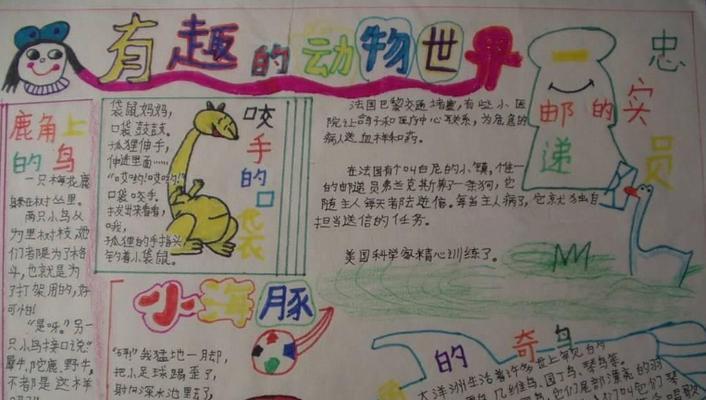 有趣的动物世界
鹿角上
的鸟
一只梅花鹿
躲在树丛里。
两只小鸟从
为里树枝,她
们者腽是为了格
斗,也就是为
了打架用的,好
可怕!
"是呀。"另一
只小鸟接口说"
犀牛、陀鹿、野牛,
不者都是这样
袋鼠妈妈,
口袋鼓鼓。
狐狸伸手,
伸进里面……
"哎哟!哎哟哟!"
口袋咬手。
拔出来看看,
哦,
狐狸的手指头
钓着小袋鼠。
咬
手
的
口
袋
法国巴黎交通堵塞,有些小医
院让鸽子和医疗中心联系,为危急的
病人送血样和药。
在法国有个叫白尼的小镇,惟一
的邮递员弗兰克斯养了一条狗,它
随主人每天都去送信。每当主人病了,它就独自
担当送信的任务。
美国科学家精心训练了。
忠
实
的
邮
递
员
小海豚
我猛地一脚,
把小足球踢歪了,
射向深水池里去了,
的奇鸟
大洋洲生活着许多世上罕见的
几维鸟、园丁鸟、琴鸟等。
它们尾部漂亮的羽